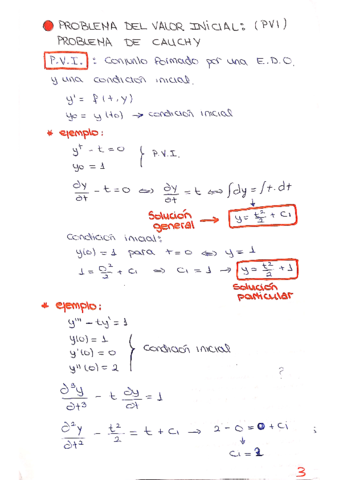 ● PROBLEMA DEL VALOR INICIAL: (PVI)
PROBLEMA DE CAUCHY
P.V.I.: Conjunto formado por una E.D.O.
y una condición inicial.
y' = f(t,y)
y₀ = y(t₀) → condición inicial
* ejemplo:
y' - t = 0
y₀ = 1 } P.V.I.
∂y/∂t - t = 0 ⇔ ∂y/∂t = t ⇔ ∫dy = ∫t·dt
Solución general → y = t²/2 + C₁
Condición inicial:
y(0) = 1 para t = 0 ⇔ y = 1
1 = 0²/2 + C₁ ⇒ C₁ = 1 → y = t²/2 + 1
Solución particular
* ejemplo:
y''' - ty' = 1
y(0) = 1
y'(0) = 0 } Condición inicial
y''(0) = 2
∂³y/∂t³ - t ∂y/∂t = 1
∂²y/∂t² - t²/2 = t + C₁ → 2 - 0 = 0 + C₁
C₁ = 2
3